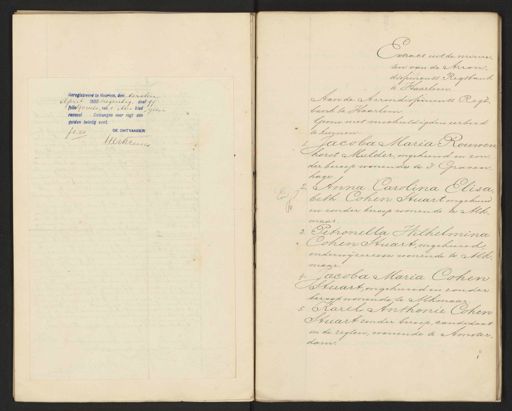 Geregistreerd te Haarlem, den
April 1890 negentig, deel 91
folio
renvooi Ontvangen voor regt een
gulden twintig cent.
f 1.20 DE ONTVANGER
Extract uit de minu
ten van de Arron
dissements Regtbank
te Haarlem
Aan de Arrondissements Regt
bank te Haarlem.
Geven met verschuldigden eerbied
te kennen
1. Jacoba Maria Rouwen
horst Mulder, ongehuwd en zon
der beroep wonende te 's Graven
hage
2. Anna Carolina Elisa
beth Cohen Stuart ongehuwd
en zonder beroep wonende te Alk
maar
3. Petronella Wilhelmina
Cohen Stuart, ongehuwd,
onderwijzeres wonende te Alk
maar
4. Jacoba Maria Cohen
Stuart, ongehuwd en zonder
beroep wonende te Alkmaar
5. Karel Anthonie Cohen
Stuart zonder beroep, candidaat
in de regten, wonende te Amster
dam.